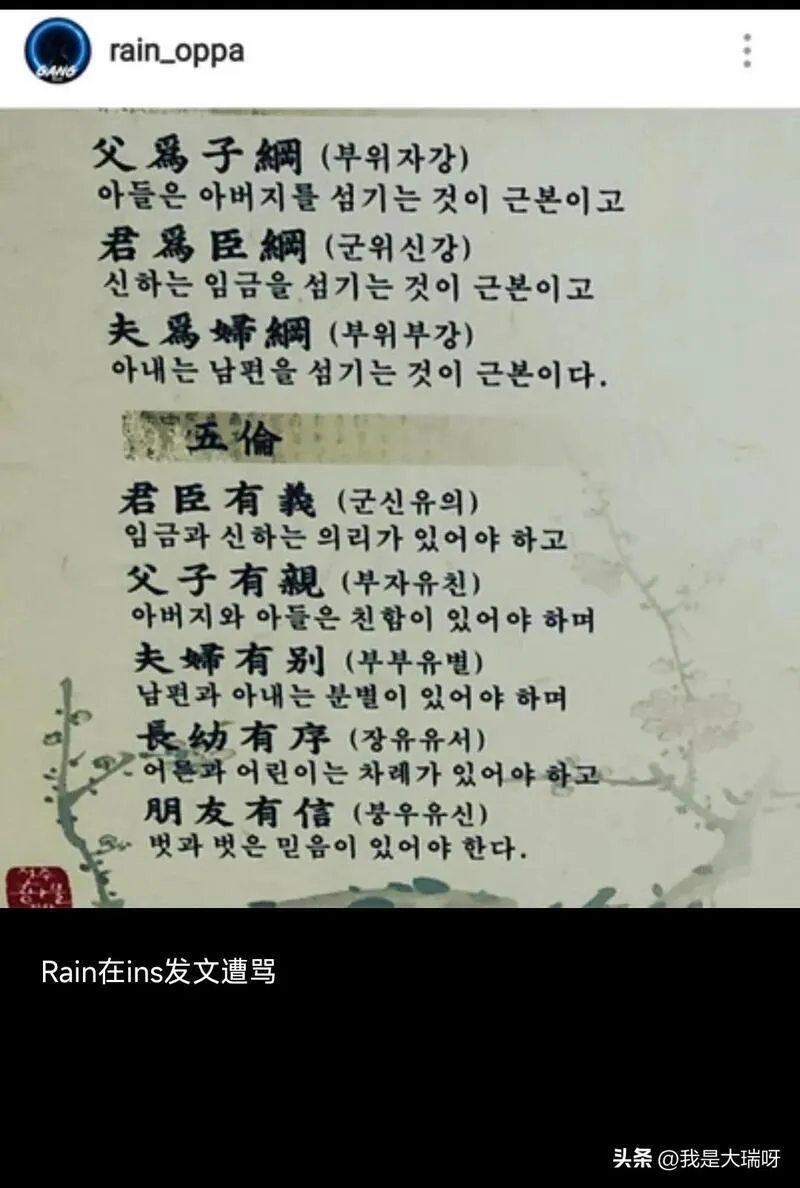 GANG
rain_oppa
父爲子綱 (부위자강)
아들은 아버지를 섬기는 것이 근본이고
君爲臣綱 (군위신강)
신하는 임금을 섬기는 것이 근본이고
夫爲婦綱 (부위부강)
아내는 남편을 섬기는 것이 근본이다.
五倫
君臣有義 (군신유의)
임금과 신하는 의리가 있어야 하고
父子有親 (부자유친)
아버지와 아들은 친함이 있어야 하며
夫婦有別 (부부유별)
남편과 아내는 분별이 있어야 하며
長幼有序 (장유유서)
어른과 어린이는 차례가 있어야 하고
朋友有信 (붕우유신)
벗과 벗은 믿음이 있어야 한다.
Rain在ins发文遭骂
头条 @我是大瑞呀